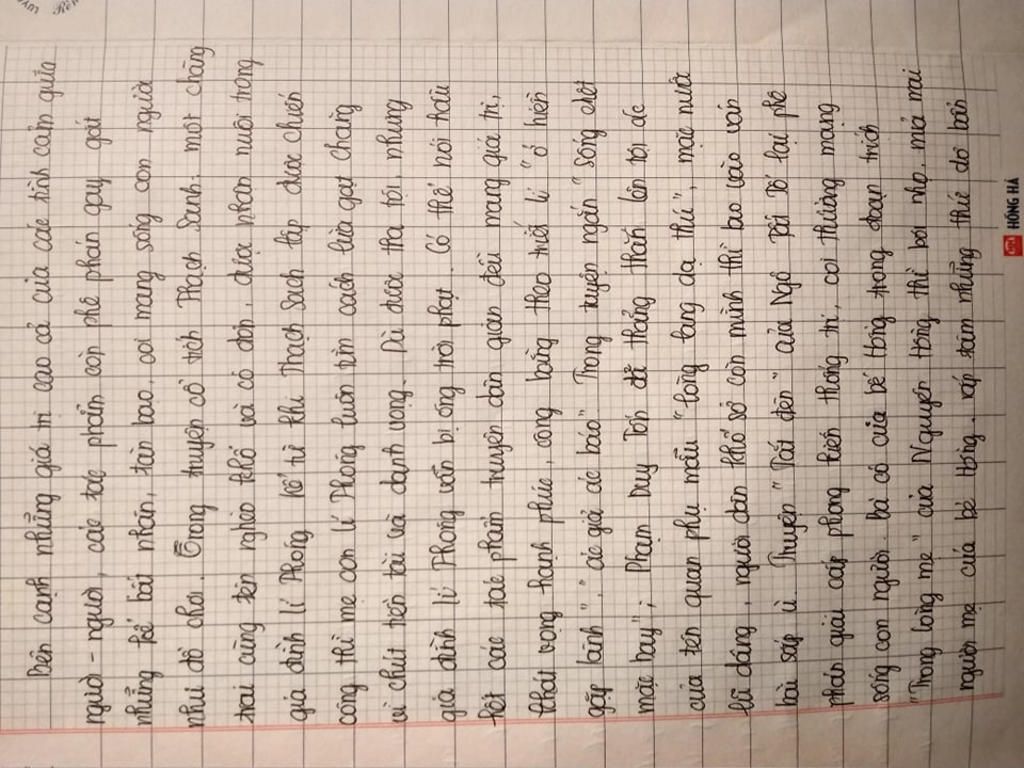 Bên cạnh những giá trị cao cả của các tình cảm giữa
người - người, các tác phẩm còn phê phán gay gắt
những kẻ bất nhân, tàn bạo, coi mạng sống con người
như đồ chơi. Trong truyện cổ tích Thạch Sanh: một chàng
trai cùng tên nghèo khổ và cô đơn, được nhận nuôi trong
gia đình Lí Thông kể từ khi Thạch Sach lập được chiến
công thì mẹ con Lí Thông luôn tìm cách lừa gạt chàng
vì chút tiền tài và danh vọng. Dù được tha tội, nhưng
gia đình Lí Thông vẫn bị ông trời phạt. Có thể nói hầu
hết các tác phẩm truyện dân gian đều mang giá trị,
khát vọng hạnh phúc, công bằng theo triết lí "ở hiền
gặp lành", "ác giả ác báo" Trong truyện ngắn "Sống chết
mặc bay"; Phạm Duy Tốn đã thẳng thắn lên tội ác
của tên quan phụ mẫu "lòng lang dạ thú", mặc nước
lũ dâng, người dân khổ sở còn mình thì lao vào ván
bài sấp ù. Truyện "Tắt đèn" của Ngô Tất Tố lại phê
phán giai cấp phong kiến thống trị, coi thường mạng
sống con người. Bà cô của bé Hồng trong đoạn trích
"Trong lòng mẹ" của Nguyên Hồng thì bôi nhọ, mỉa mai
người mẹ của bé Hồng, rắp tâm những thứ dơ bẩn
HỒNG HÀ